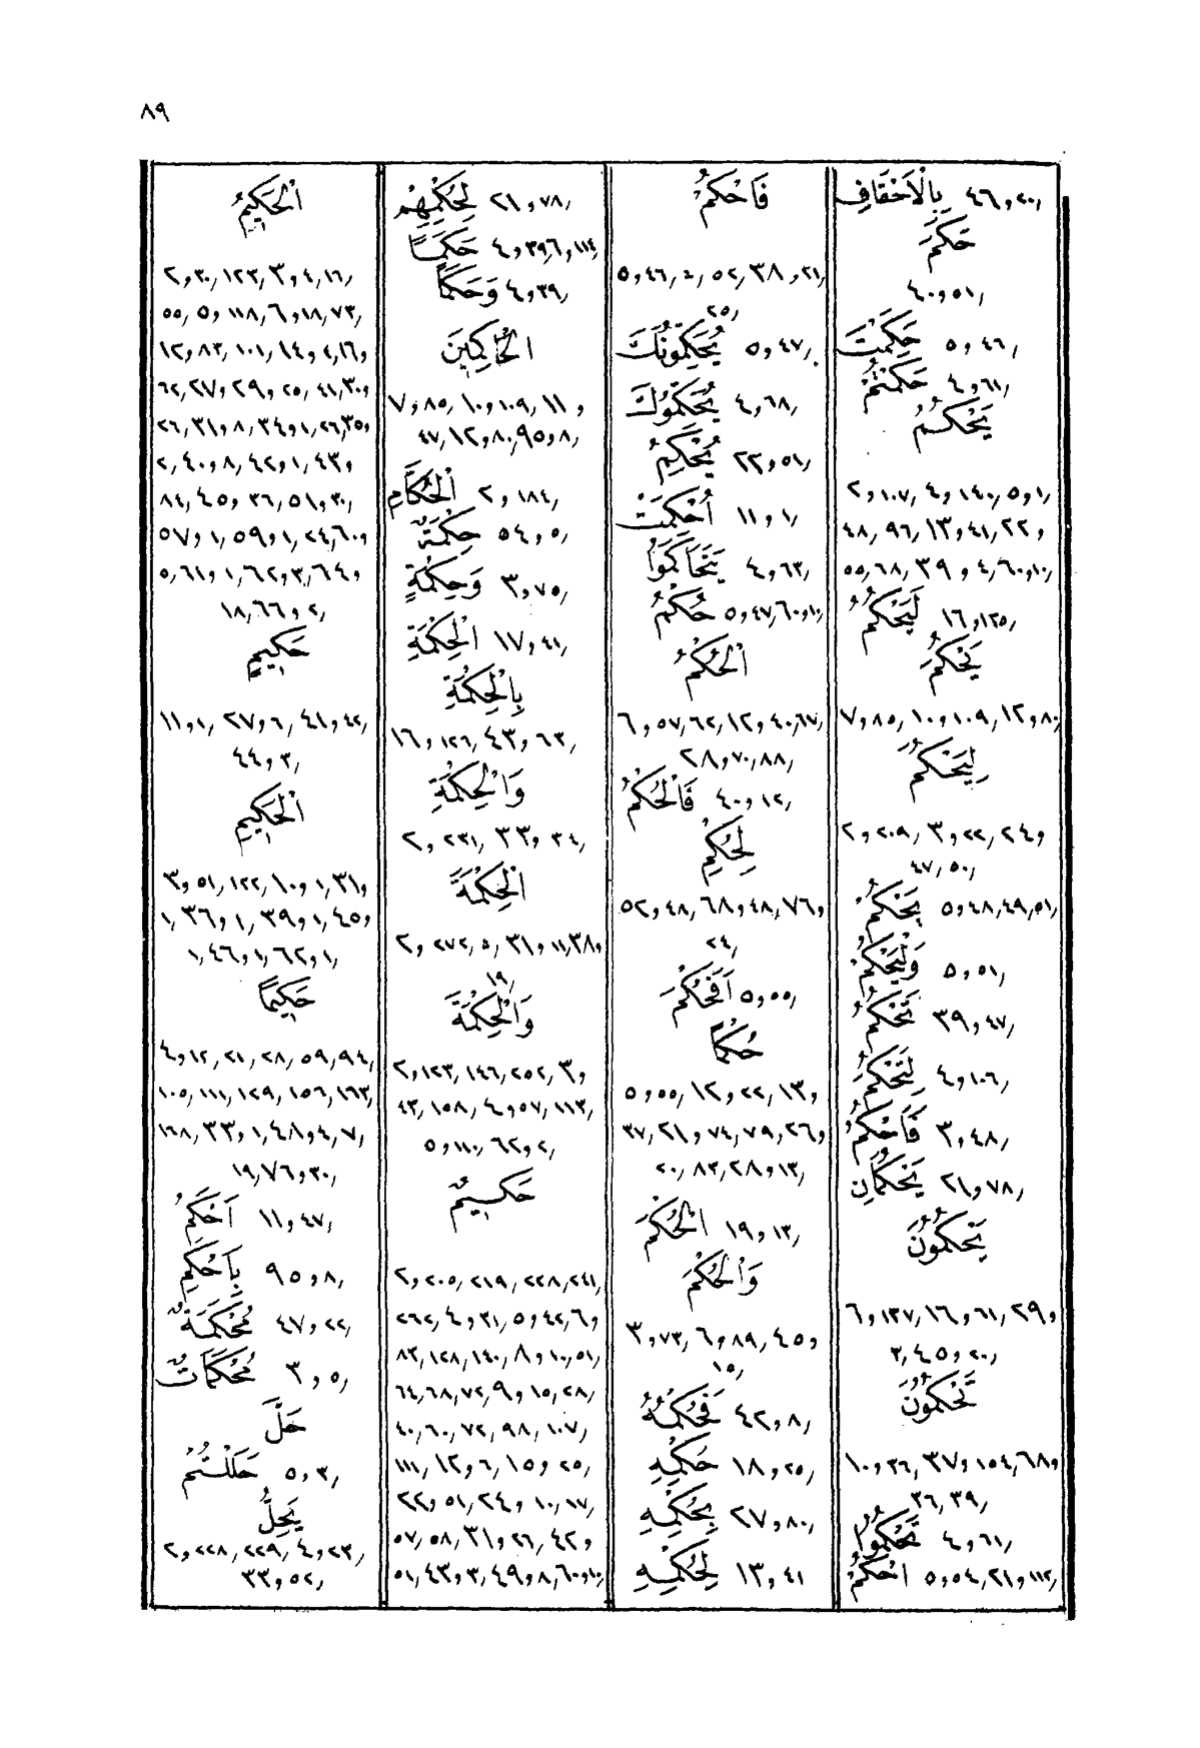 ٨٩
بِالْاَحْقَافِ ٤٦,٢٠,
حَكَمَ
٤٠,٥١,
حَكَمْتَ ٥,٤٦,
حَكَمْتُمْ ٤,٦١,
يَحْكُمُ
٢,١٠٧, ٤,١٤٠, ٥,١,
٤٨, ٩٦, ١٣,٤١, ٢٢,
٥٥,٦٨, ٣٩, ٤,٦٠,١٠,
لَيَحْكُمُ ١٦,١٢٥,
يَحْكُمَ
٧,٨٥, ١٠,١٠٩, ١٢,٨٠,
لِيَحْكُمَ
٢,٢٠٩, ٣,٢٢, ٢٤,
٤٧,٥٠,
يَحْكُمْ ٥,٤٨,٤٩,٥١,
وَلْيَحْكُمْ ٥,٥١,
تَحْكُمُ ٣٩,٤٧,
لِتَحْكُمَ ٤,١٠٦,
فَاَحْكُمُ ٣,٤٨,
يَحْكُمَانِ ٢١,٧٨,
يَحْكُمُونَ
٦,١٣٧, ١٦,٦١, ٢٩,
٣,٤٥,٢٠,
تَحْكُمُونَ
١٠,٣٦, ٣٧,١٥٤,٦٨,
٣٦,٣٩,
تَحْكُمُوا ٤,٦١,
احْكُمْ ٥,٥٤,٢١,١١٢,
فَاحْكُمْ
٥,٤٦, ٥٢,٣٨,٢١,
٢٥,
يُحَكِّمُونَكَ ٥,٤٧,
يُحَكِّمُوكَ ٤,٦٨,
يُحْكِمُ ٢٢,٥١,
اُحْكِمَتْ ١١,١,
يَتَحَاكَمُوا ٤,٦٣,
حُكْمُ ٥,٤٧,٦٠,١٠,
اَلْحُكْمُ
٦,٥٧,٦٢, ١٢,٤٠,٦٧,
٢٨,٧٠,٨٨,
فَالْحُكْمُ ٤٠,١٢,
لِحُكْمِ
٥٢,٤٨, ٦٨,٤٨, ٧٦,
٢٤,
اَفَحُكْمَ ٥,٥٥,
حُكْمًا
٥,٥٥, ١٢,٢٢, ١٣,
٣٧, ٢١,٧٤, ٧٩, ٢٦,
٢٠, ٨٣, ٢٨,١٣,
الْحُكْمَ ١٩,١٣,
وَالْحُكْمَ
٣,٧٣, ٦,٨٩, ٤٥,
١٥,
فَحُكْمُهُ ٤٢,٨,
حُكْمِهِ ١٨,٢٥,
بِحُكْمِهِ ٢٧,٨٠,
لِحُكْمِهِ ١٣,٤١
لِحُكْمِهِمْ ٢١,٧٨,
حَكَمًا ٤,٣٩, ٦,١١٤,
وَحَكَمًا ٤,٣٩,
الْحَاكِمِينَ
٧,٨٥, ١٠,١٠٩, ١١,
٤٧, ١٢,٨٠, ٩٥,٨,
اَلْحُكَّامِ ٢,١٨٤,
حِكْمَةٌ ٥٤,٥,
وَحِكْمَةٍ ٣,٧٥,
اَلْحِكْمَةِ ١٧,٤١,
بِالْحِكْمَةِ
١٦,١٢٦, ٤٣,٦٣,
وَالْحِكْمَةِ
٢,٢٣١, ٣٣,٣٤,
اَلْحِكْمَةَ
٢,٢٧٢, ٥, ٣١,١١,٣٨,
١٩,
وَالْحِكْمَةَ
٢,١٢٣, ١٤٦, ٢٥٢, ٣,
٤٣, ١٥٨, ٤,٥٧, ١١٣,
٥,١١٠, ٦٢,٢,
حَكِيمٌ
٢,٢٠٥, ٢١٩, ٢٢٨,٢٤١,
٢٦٢, ٤,٣١, ٥,٤٢, ٦,
٨٣, ١٢٨, ١٤٠, ٨,١٠,٥١,
٦٤,٦٨, ٧٢, ٩,١٥,٢٨,
٤٠,٦٠,٧٢, ٩٨, ١٠٧,
١١١, ١٢,٦, ١٥,٢٥,
٢٢,٥١, ٢٤,١٠,١٧,
٥٧,٥٨, ٣١,٢٦, ٤٢,
٥١, ٤٣,٣, ٤٩,٨,٦٠,١٠,
اَلْحَكِيمُ
٢,٣٠, ١٢٣, ٣,٤,١٦,
٥٥, ٥,١١٨, ٦,١٨,٧٣,
١٢,٨٣, ١٠١, ١٤,٤,١٦,
٦٢,٢٧,٢٩,٢٥,٤١,٣٠,
٢٦,٣١,٨,٣٤,١,٢٦,٣٥,
٢,٤٠,٨,٤٢,١,٤٣,
٨٤,٤٥,٣٦,٥١,٣٠,
٥٧,١,٥٩,١,٢٤,٦٠,
٥,٦١,١,٦٢,٣,٦٤,
١٨,٦٦,٢,
حَكِيمٍ
١١,١, ٢٧,٦, ٤١,٤٢,
٤٤,٣,
اَلْحَكِيمِ
٣,٥١,١٢٢,١٠,١,٣١,
١,٣٦,١,٣٩,١,٤٥,
١,٤٦,١,٦٢,١,
حَكِيمًا
٤,١٢, ٢١, ٢٨, ٥٩,٩٤,
١٠٥, ١١١, ١٢٩, ١٥٦,١٦٣,
١٦٨, ٣٣,١,٤٨,٤,٧,
١٩,٧٦,٣٠,
اَحْكَمُ ١١,٤٧,
بِاَحْكَمِ ٩٥,٨,
مُحْكَمَةٌ ٤٧,٢٢,
مُحْكَمَاتٌ ٣,٥,
حَلَّ
حَلَلْتُمْ ٥,٣,
يَحِلُّ
٢,٢٢٨, ٢٢٩, ٤,٢٣,
٣٣,٥٢,